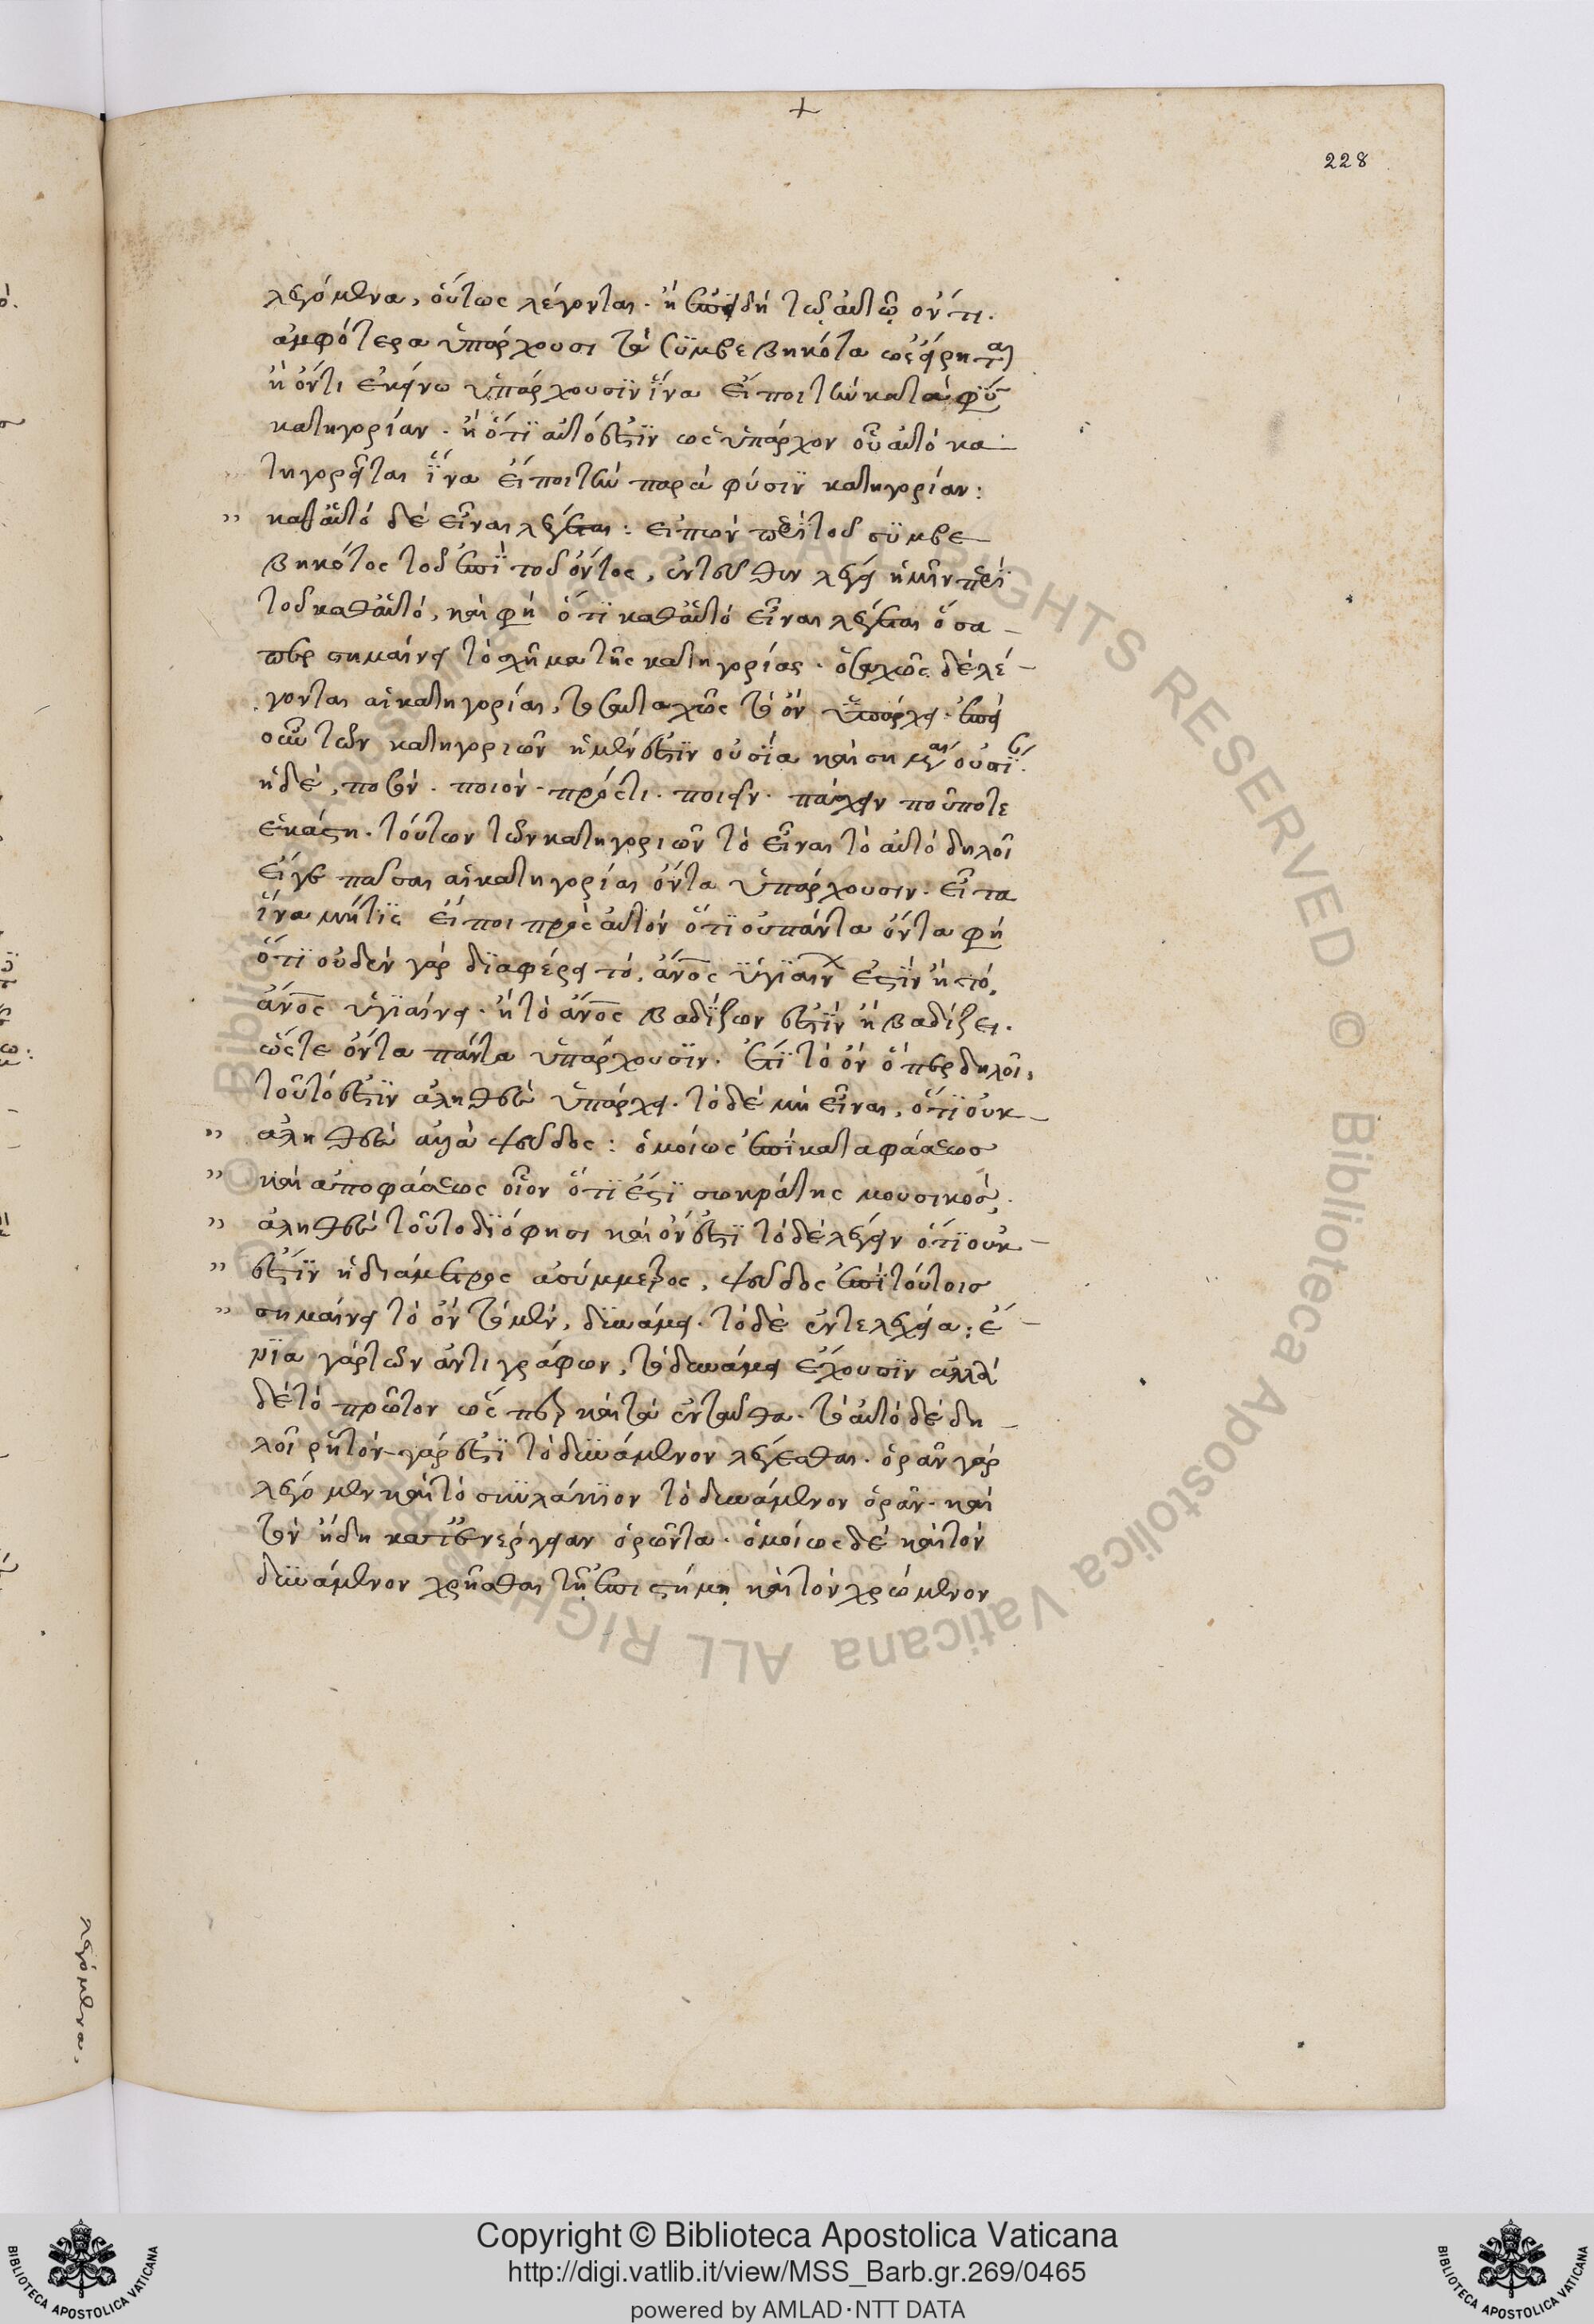 +
228
λεγόμενα, οὕτως λέγονται. ἢ ἐπειδὴ τῷ αὐτῷ ὄντι.
ἀμφότερα ὑπάρχουσι τὰ συμβεβηκότα ὡς εἴρηται
ἢ ὄντι ἐκείνω ὑπάρχουσιν ἵνα εἴποι τὴν κατὰ φύ
κατηγορίαν. ἢ ὅτι αὐτό ἐστιν ὡς ὑπάρχον οὗ αὐτὸ κα
τηγορεῖται ἵνα εἴποι τὴν παρὰ φύσιν κατηγορίαν:
καθ' αὑτὸ δὲ εἶναι λέγεται: εἰπὼν περὶ τοῦ συμβε
βηκότος τοῦ ἐπὶ τοῦ ὄντος, ἐντεῦθεν λέγει ἡμῖν περὶ
τοῦ καθ' αὑτό, καί φη ὅτι καθ' αὑτὸ εἶναι λέγεται ὅσα
περ σημαίνει τὸ σχῆμα τῆς κατηγορίας. ὁσαχῶς δὲ λέ
γονται αἱ κατηγορίαι, τοσαυταχῶς τὸ ὂν ὑπάρχει. ἐπεὶ
οὖν τῶν κατηγοριῶν ἡ μέν ἐστιν οὐσία καὶ σημαίνει οὐσί
ἡ δὲ, ποσόν. ποιόν. πρός τι. ποιεῖν. πάσχειν ποῦ ποτε
ἑκάστη. τούτων τῶν κατηγοριῶν τὸ εἶναι τὸ αὐτὸ δηλοῖ
εἴγε πᾶσαι αἱ κατηγορίαι ὄντα ὑπάρχουσιν. εἶτα
ἵνα μήτις εἴποι πρὸς αὐτὸν ὅτι οὐ πάντα ὄντα φη
ὅτι οὐδὲν γὰρ διαφέρει τό, ἄνος ὑγιαίν ἐστὶν ἢ τό,
ἄνος ὑγιαίνει. ἢ τὸ ἄνος βαδίζων ἐστὶν ἢ βαδίζει.
ὥστε ὄντα πάντα ὑπάρχουσιν. ἔτι τὸ ὂν ὅπερ δηλοῖ,
τοῦτό ἐστιν ἀληθὲς ὑπάρχει. τὸ δὲ μὴ εἶναι, ὅτι οὐκ
ἀληθὲς ἀλλὰ ψεῦδος: ὁμοίως ἐπὶ καταφάσεως
καὶ ἀποφάσεως οἷον ὅτι ἔστι σωκράτης μουσικὸς.
ἀληθὲς τοῦτο διό φησι καὶ ὄν ἐστι τὸ δὲ λέγειν ὅτι οὐκ
ἔστιν ἡ διάμετρος ἀσύμμετρος, ψεῦδος ἐπὶ τούτοις
σημαίνει τὸ ὂν τὸ μὲν, δυνάμει. τὸ δὲ ἐντελεχεία: ἔ
νια γὰρ τῶν ἀντιγράφων, τὸ δυνάμει ἔχουσιν ἀλλὰ
δὲ τὸ πρῶτον ὥς περ καὶ τὰ ἐνταῦθα. τὸ αὐτὸ δὲ δη
λοῖ ῥητὸν γάρ ἐστι τὸ δυνάμενον λέγεσθαι. ὁρᾶν γάρ
λέγομεν καὶ τὸ σκυλάκιον τὸ δυνάμενον ὁρᾶν. καὶ
τὸν ἤδη κατ' ἐνέργειαν ὁρῶντα. ὁμοίως δὲ καὶ τὸν
δυνάμενον χρῆσθαι τῇ ἐπιστήμῃ καὶ τὸν χρώμενον
λεγόμενα,
© Biblioteca Apostolica Vaticana ALL RIGHTS RESERVED © Biblioteca Apostolica Vaticana ALL RIGHTS
BIBLIOTECA APOSTOLICA VATICANA
Copyright © Biblioteca Apostolica Vaticana
http://digi.vatlib.it/view/MSS_Barb.gr.269/0465
powered by AMLAD·NTT DATA
BIBLIOTECA APOSTOLICA VATICANA